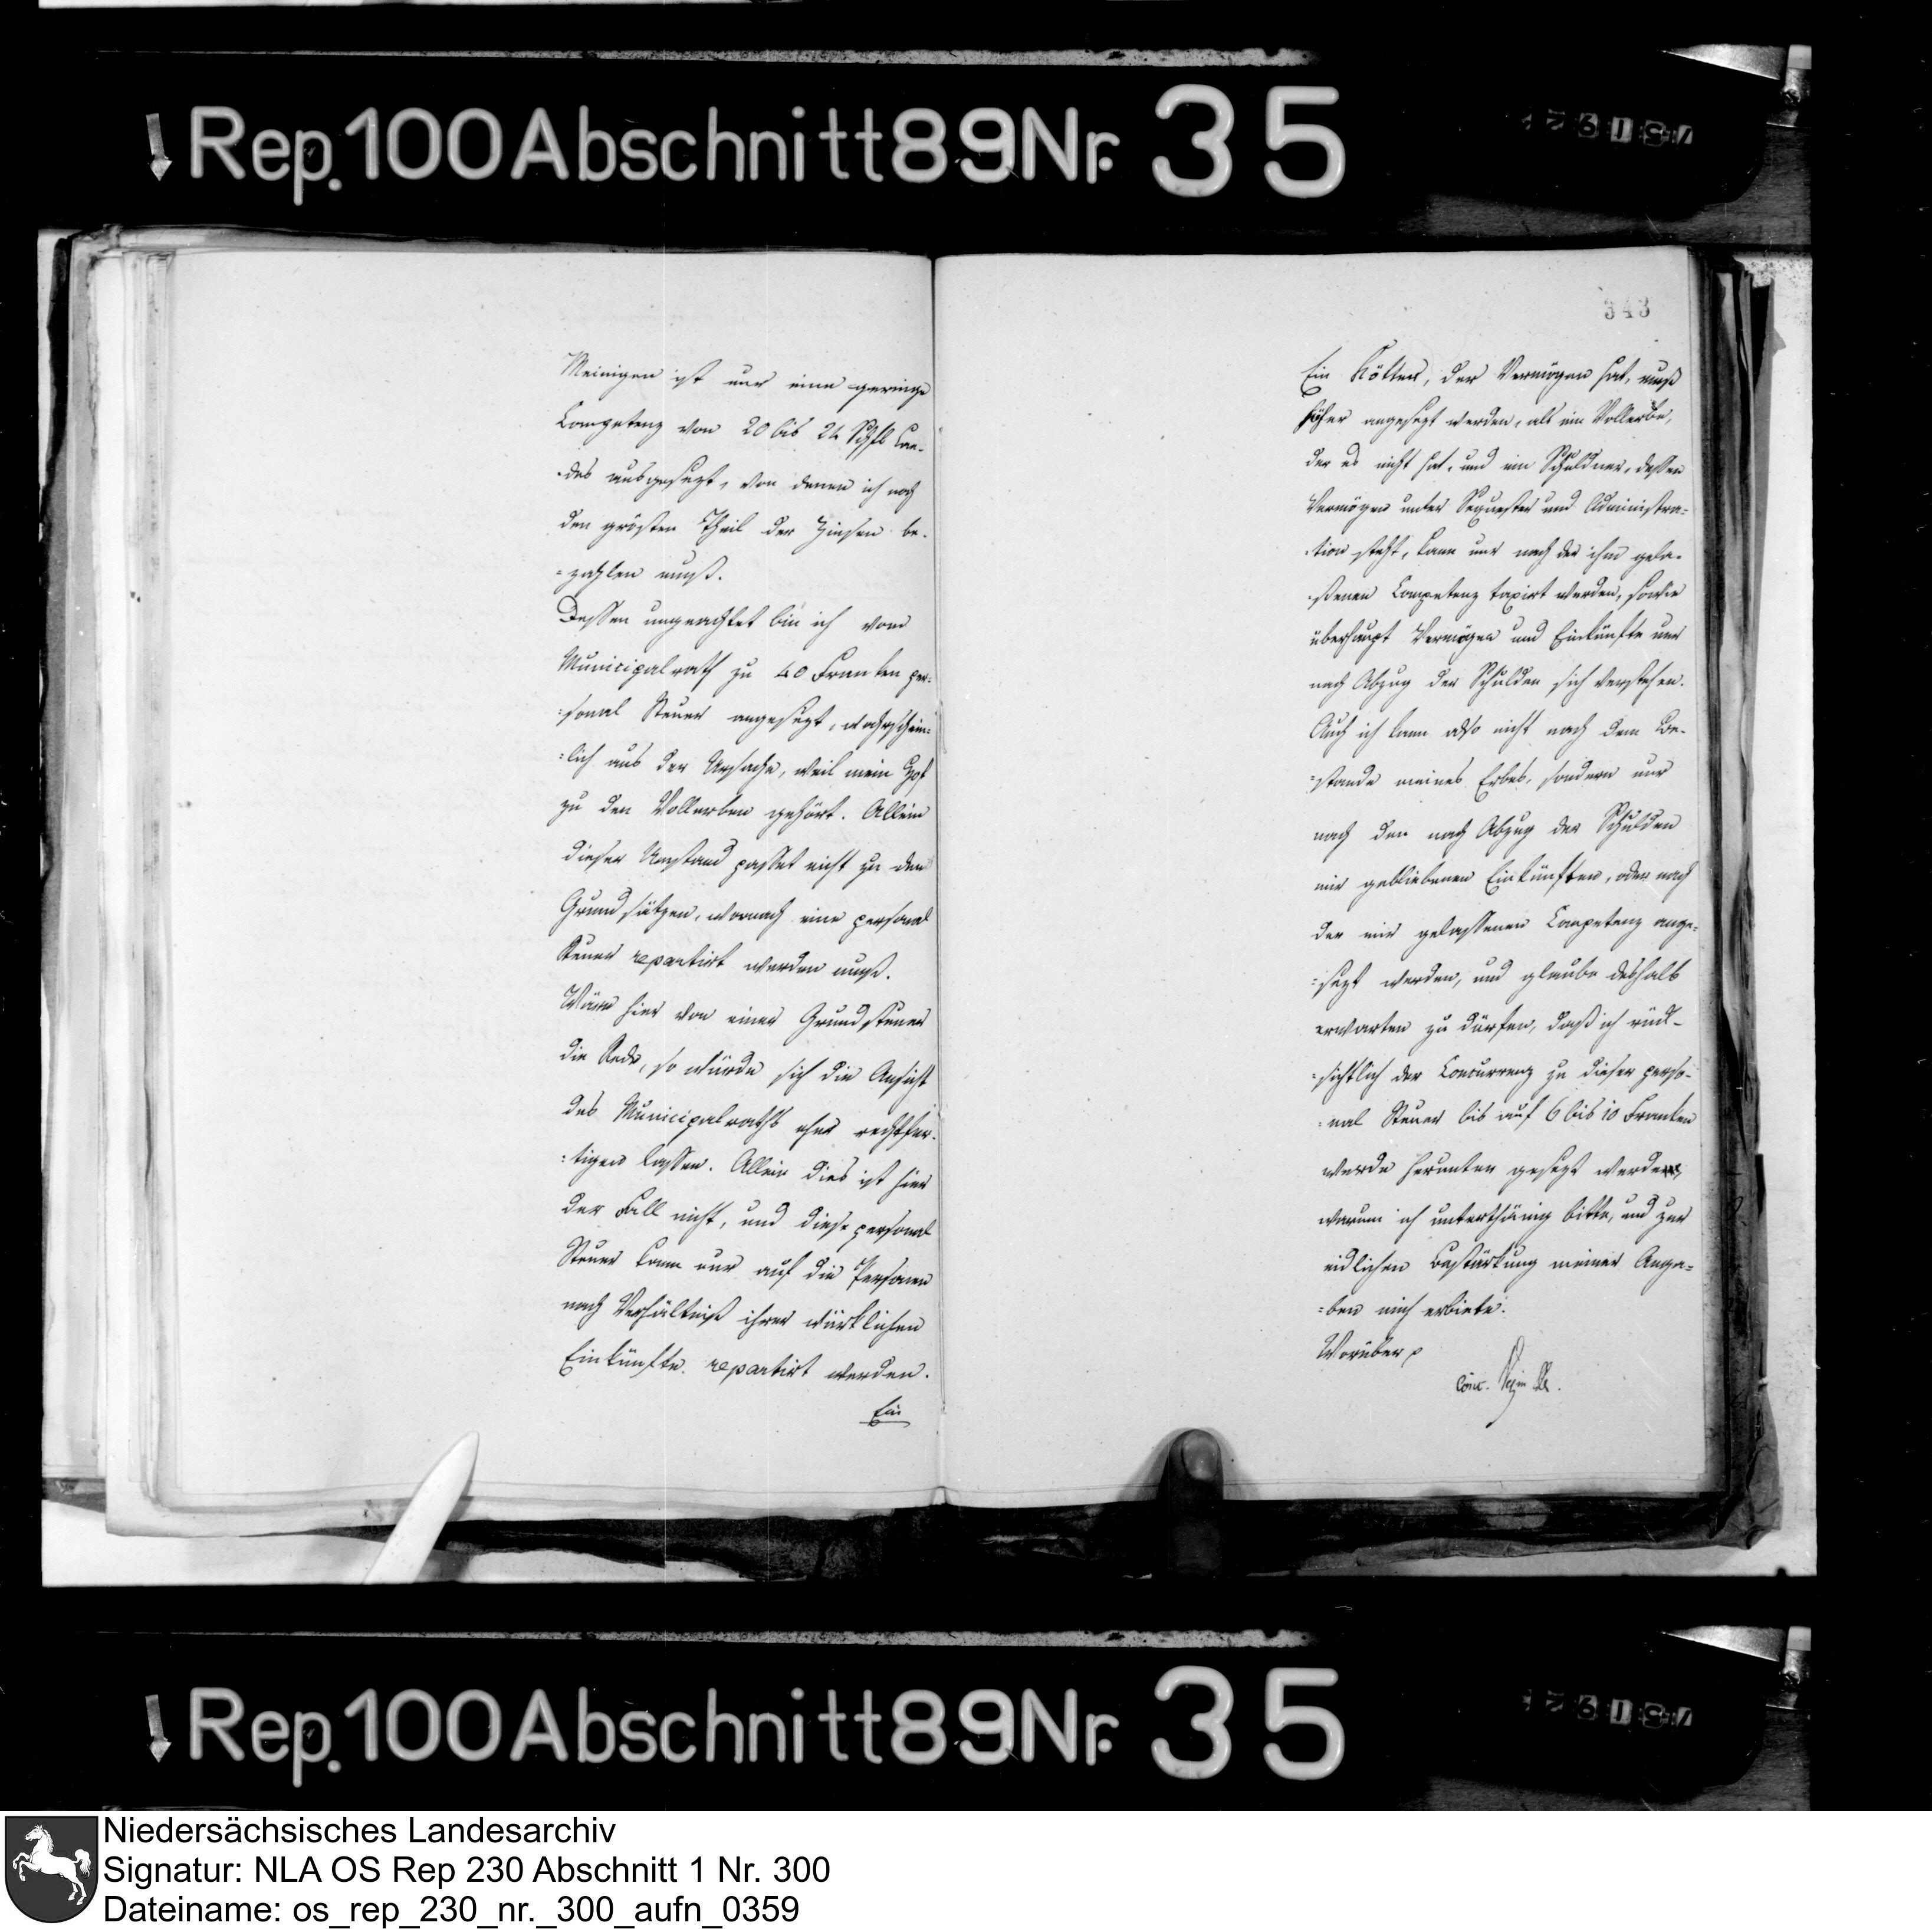 Rep. 100 Abschnitt 89 Nr. 35
Meinigen ist nur eine geringe
Competenz von 20 bis 24 Schfl Lan-
-des ausgesezt, von denen ich noch
den grösten Theil der Zinsen be-
=zahlen muß.
Dessen ungeachtet bin ich vom
Municipalrath zu 40 Franken per=
=sonal Steuer angesezt, wahrschein=
=lich aus der Ursache, weil mein Hof
zu den Vollerben gehört. Allein
dieser Umstand passet nicht zu den
Grundsätzen, wornach eine personal
Steuer repartirt werden muß.
Wäre hier von einer Grundsteuer
die Rede, so würde sich die Ansicht
des Municipalraths eher rechtfer-
=tigen lassen. Allein dies ist hier
der Fall nicht, und diese personal
Steuer kann nur auf die Personen
nach Verhältniß ihrer würklichen
Einkünfte repartirt werden.
Ein
343
Ein Kötter, der Vermögen hat, muß
höher angesezt werden, als ein Vollerbe,
der es nicht hat, und ein Schuldner, dessen
Vermögen unter Sequester und Administra=
-tion steht, kann nur nach der ihm gela-
-ßenen Competenz taxirt werden, sowie
überhaupt Vermögen und Einkünfte nur
nach Abzug der Schulden sich verstehen.
Auch ich kann also nicht nach dem Be-
=stande meines Erbes, sondern nur
nach den nach Abzug der Schulden
mir gebliebenen Einkünften, oder nach
der mir gelassenen Competenz ange=
=sezt werden, und glaube deshalb
erwarten zu dürfen, daß ich rück-
=sichtlich der Concurrenz zu dieser perso-
=nal Steuer bis auf 6 bis 10 Franken
werde herunter gesezt werden,
warum ich unterthänig bitte, und zur
eidlichen Bestärkung meiner Anga=
=ben mich erbiete.
Worüber p
conc.
Rep. 100 Abschnitt 89 Nr. 35
Niedersächsisches Landesarchiv
Signatur: NLA OS Rep 230 Abschnitt 1 Nr. 300
Dateiname: os_rep_230_nr._300_aufn_0359